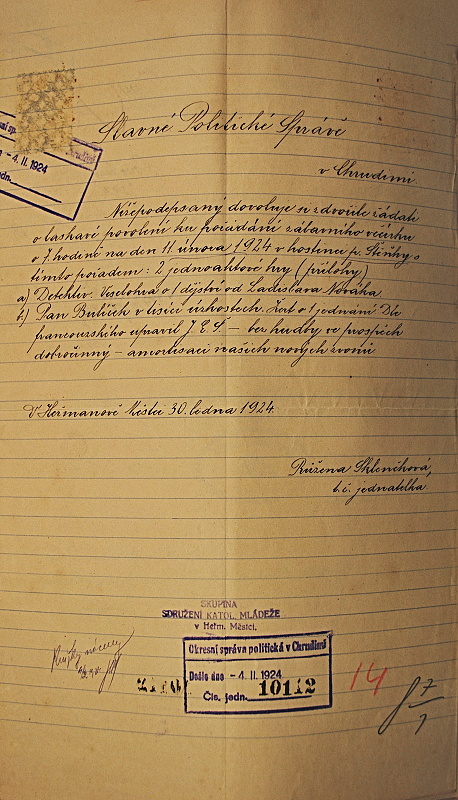 - 4. II. 1924
Chrudimi
Slavné Politické Správě
v Chrudimi.
Nížepodepsaný dovoluje si zdvořile žádati
o laskavé povolení ku pořádání zábavního večírku
o 7. hodině na den 11 února 1924 v hostinci p. s
tímto pořadem: 2 jednoaktové hry (přílohy)
a) Detektiv. Veselohra o 1 dějství od Ladislava Nováka.
b) Pan Bulíček v lisici úzkostech. Žert o 1 jednání Dle
francouzského upravil J. E. S. — bez hudby ve prospěch
dobročinný — amortisaci našich nových zvonů
V Heřmanově Městci 30. ledna 1924.
Růžena Skleničková,
t. č. jednatelka.
SKUPINA
SDRUŽENÍ KATOL. MLÁDEŽE
v Heřm. Městci.
Okresní správa politická v Chrudimi
Došlo dne - 4. II. 1924
Čís. jedn. 10112
14